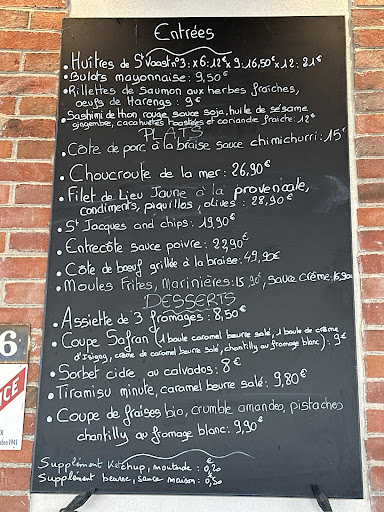 Entrées
• Huîtres de St Vaast n°3 : x6 : 12€ x9 : 16,50€ x12 : 21€
• Bulots mayonnaise : 9,50€
• Rillettes de saumon aux herbes fraîches,
oeufs de Harengs : 9€
• Sashimi de thon rouge, sauce soja, huile de sésame
gingembre, cacahuètes toastées et coriande fraîche : 12€
PLATS
• Côte de porc à la braise sauce chimichurri : 15€
• Choucroute de la mer : 26,90€
• Filet de Lieu Jaune à la provençale,
condiments, piquillos, olives : 28,90€
• St Jacques and chips : 19,90€
• Entrecôte sauce poivre : 22,90€
• Côte de boeuf grillée à la braise : 49,90€
• Moules Frites, Marinières : 15,90€, sauce Crème : 15,90€
DESSERTS
• Assiette de 3 fromages : 8,50€
• Coupe Safran (1 boule caramel beurre salé, 1 boule de crème
d'Isigny, crème de caramel beurre salé, chantilly au fromage blanc) : 9€
• Sorbet cidre au calvados : 8€
• Tiramisu minute, caramel beurre salé : 9,80€
• Coupe de fraises bio, crumble amandes, pistaches
chantilly au fromage blanc : 9,90€
Supplément Ketchup, moutarde : 0,20€
Supplément beurre, sauce maison : 0,50€
6
1941